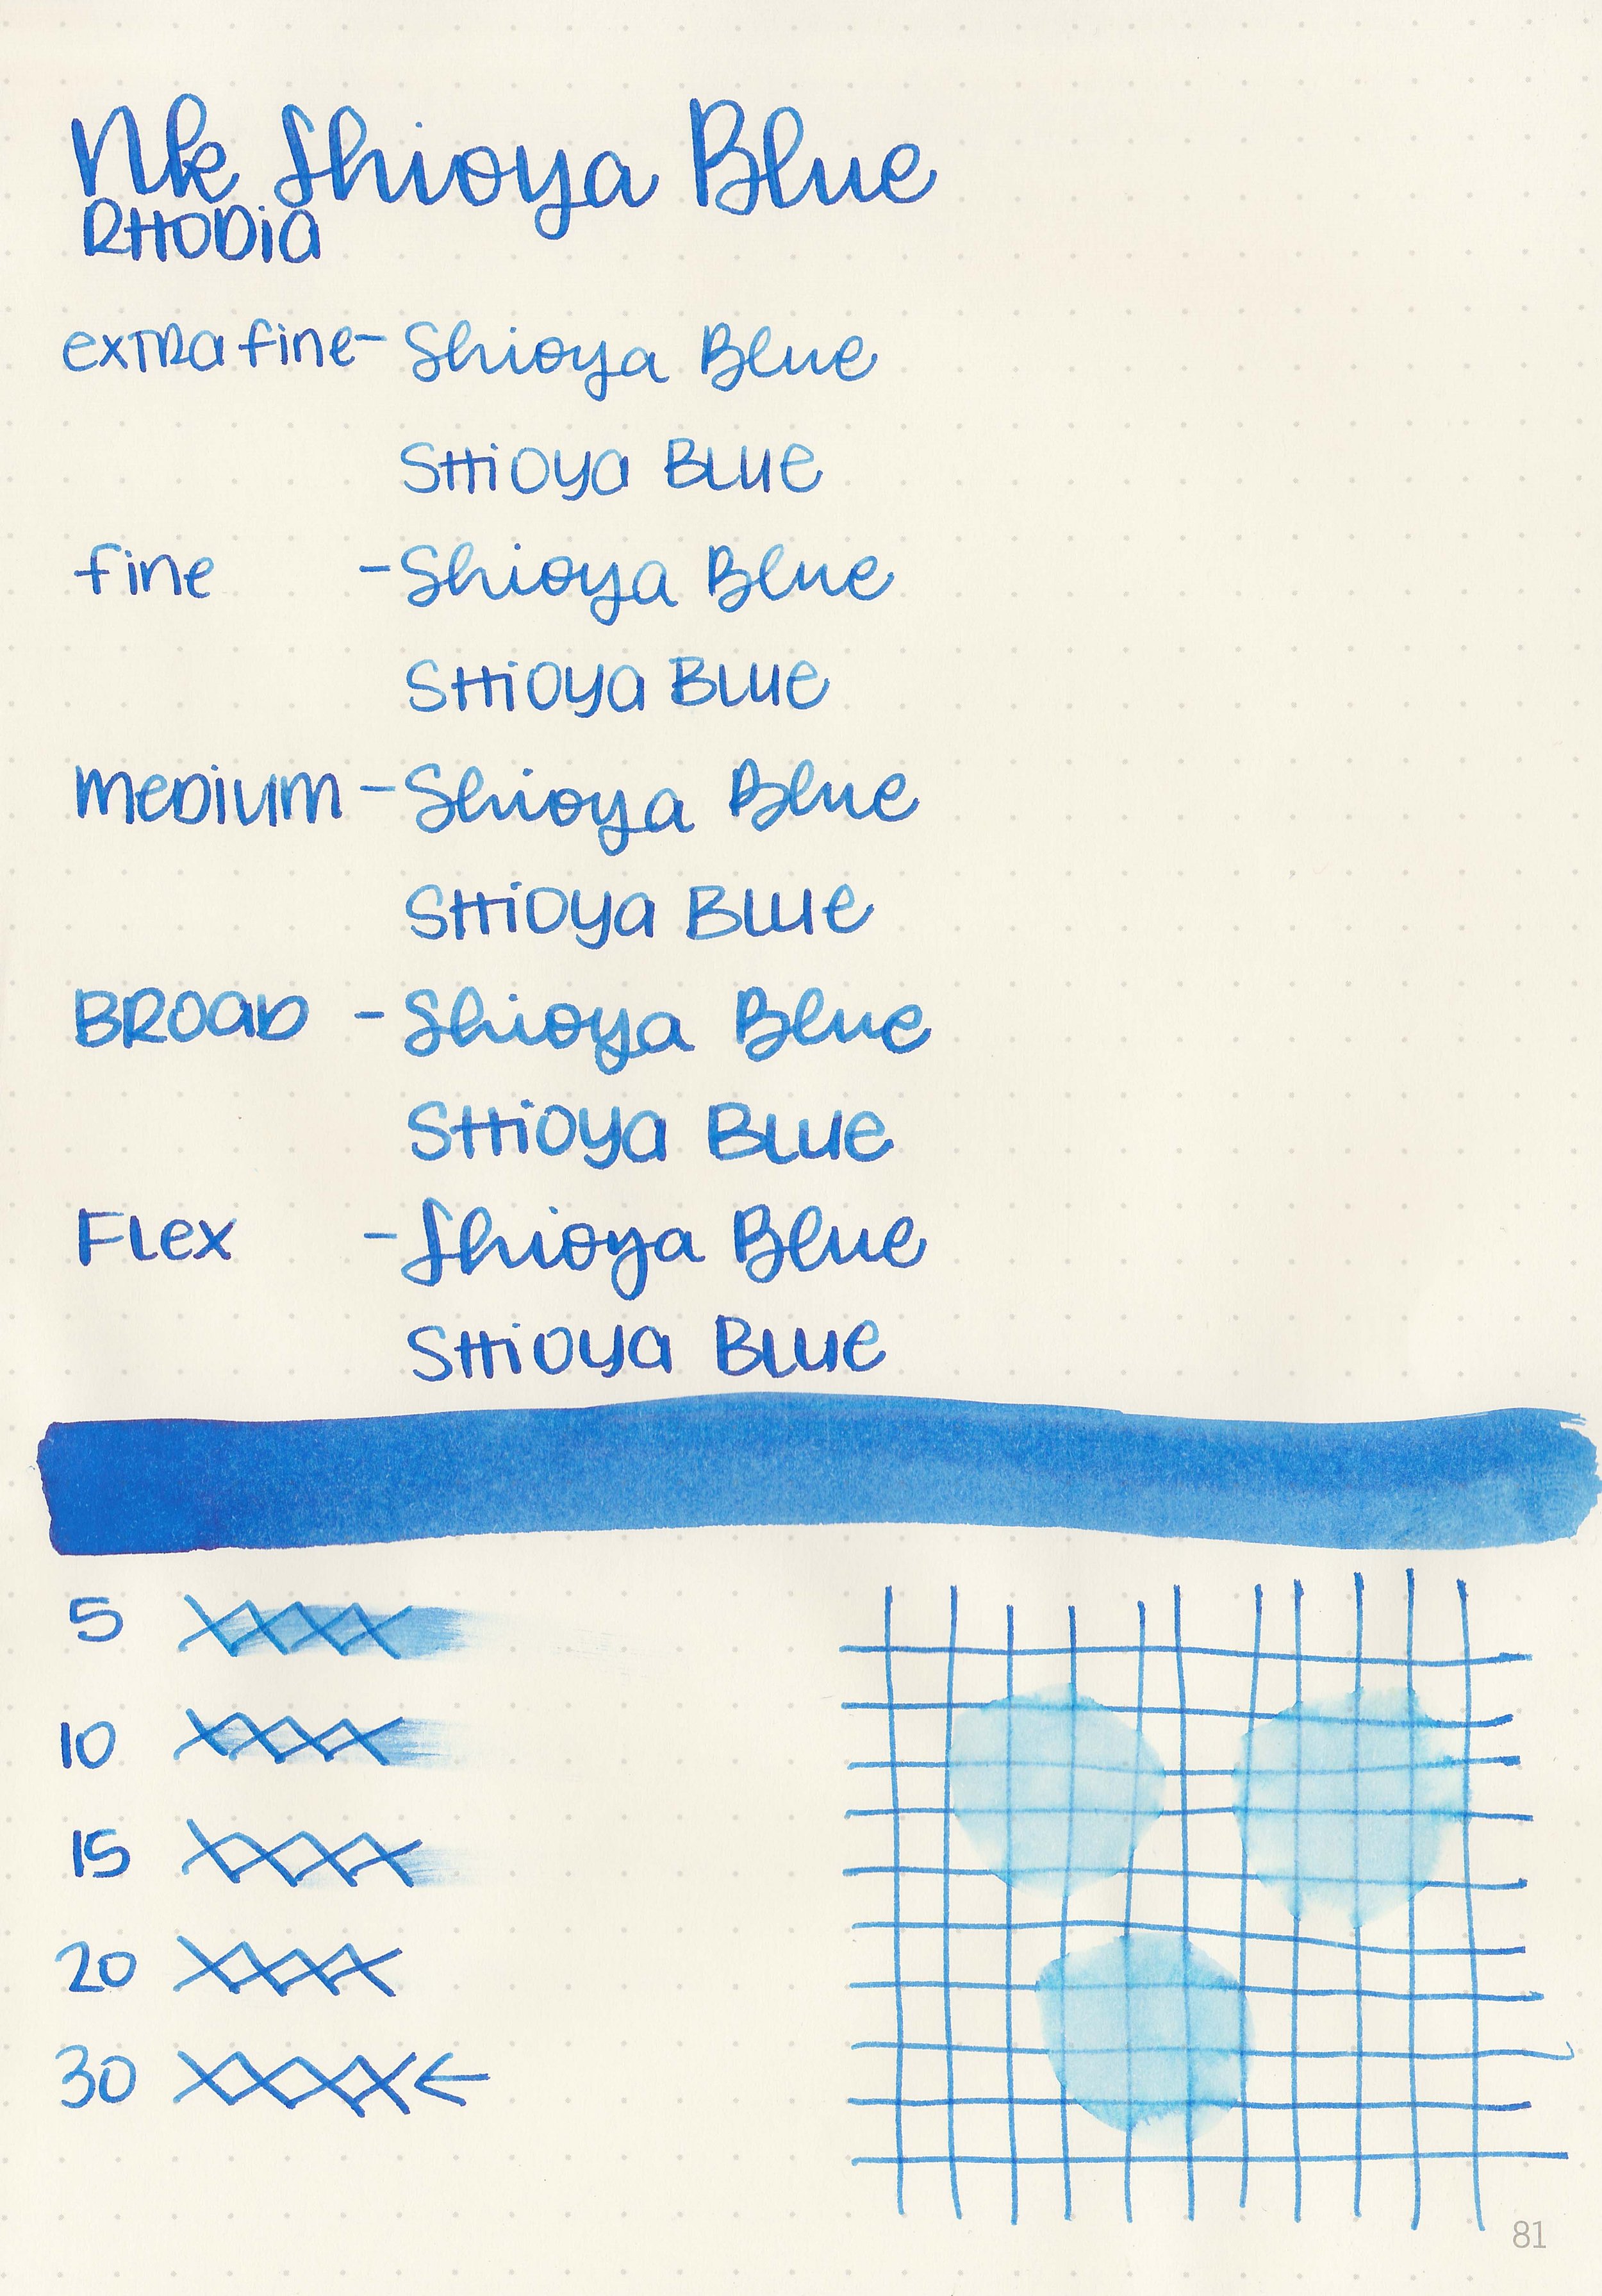 Nk Shioya Blue
RHODiA
exTRA fine - Shioya Blue
SHiOya BLUe
fine - Shioya Blue
SHiOya BLUe
meDiUm - Shioya Blue
SHiOya BLUe
BROaD - Shioya Blue
SHiOya BLUe
FLex - Shioya Blue
SHiOya BLUe
5
10
15
20
30 ←
81